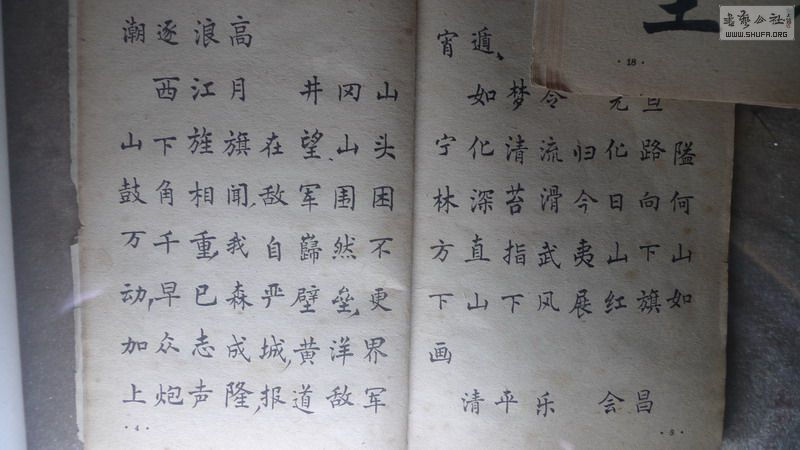 潮逐浪高
西江月 井冈山
山下旌旗在望、山头
鼓角相闻，敌军围困
万千重，我自巋然不
动，早已森严壁垒，更
加众志成城，黄洋界
上炮声隆，报道敌军
·4·
宵遁。
如梦令 元旦
宁化清流归化路隘
林深苔滑今日向何
方直指武夷山下山
下山下风展红旗如
画
清平乐 会昌
·5·
·18·
书艺公社
WWW.SHUFA.ORG